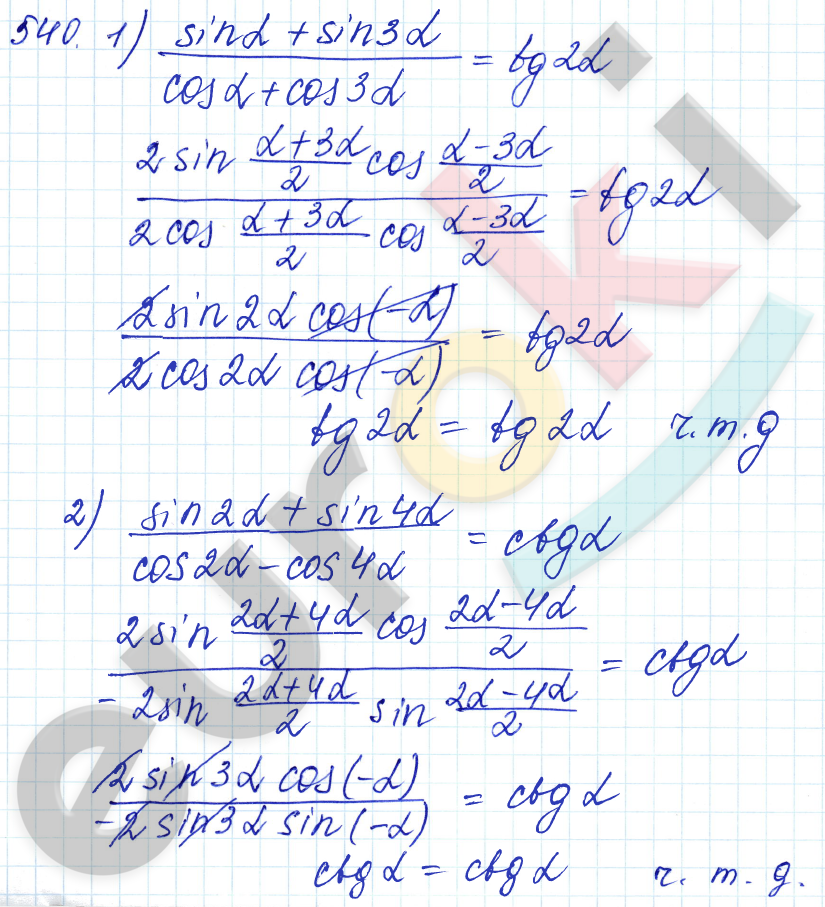 540. 1) (sinα + sin3α)/(cosα + cos3α) = tg2α
(2 sin (α+3α)/2 cos (α-3α)/2)/(2 cos (α+3α)/2 cos (α-3α)/2) = tg2α
(2 sin 2α cos(-α))/(2 cos 2α cos(-α)) = tg2α
tg2α = tg2α ч.т.д
2) (sin2α + sin4α)/(cos2α - cos4α) = ctgα
(2 sin (2α+4α)/2 cos (2α-4α)/2)/(-2 sin (2α+4α)/2 sin (2α-4α)/2) = ctgα
(2 sin 3α cos(-α))/(-2 sin 3α sin(-α)) = ctgα
ctgα = ctgα ч. т. д.
euroki